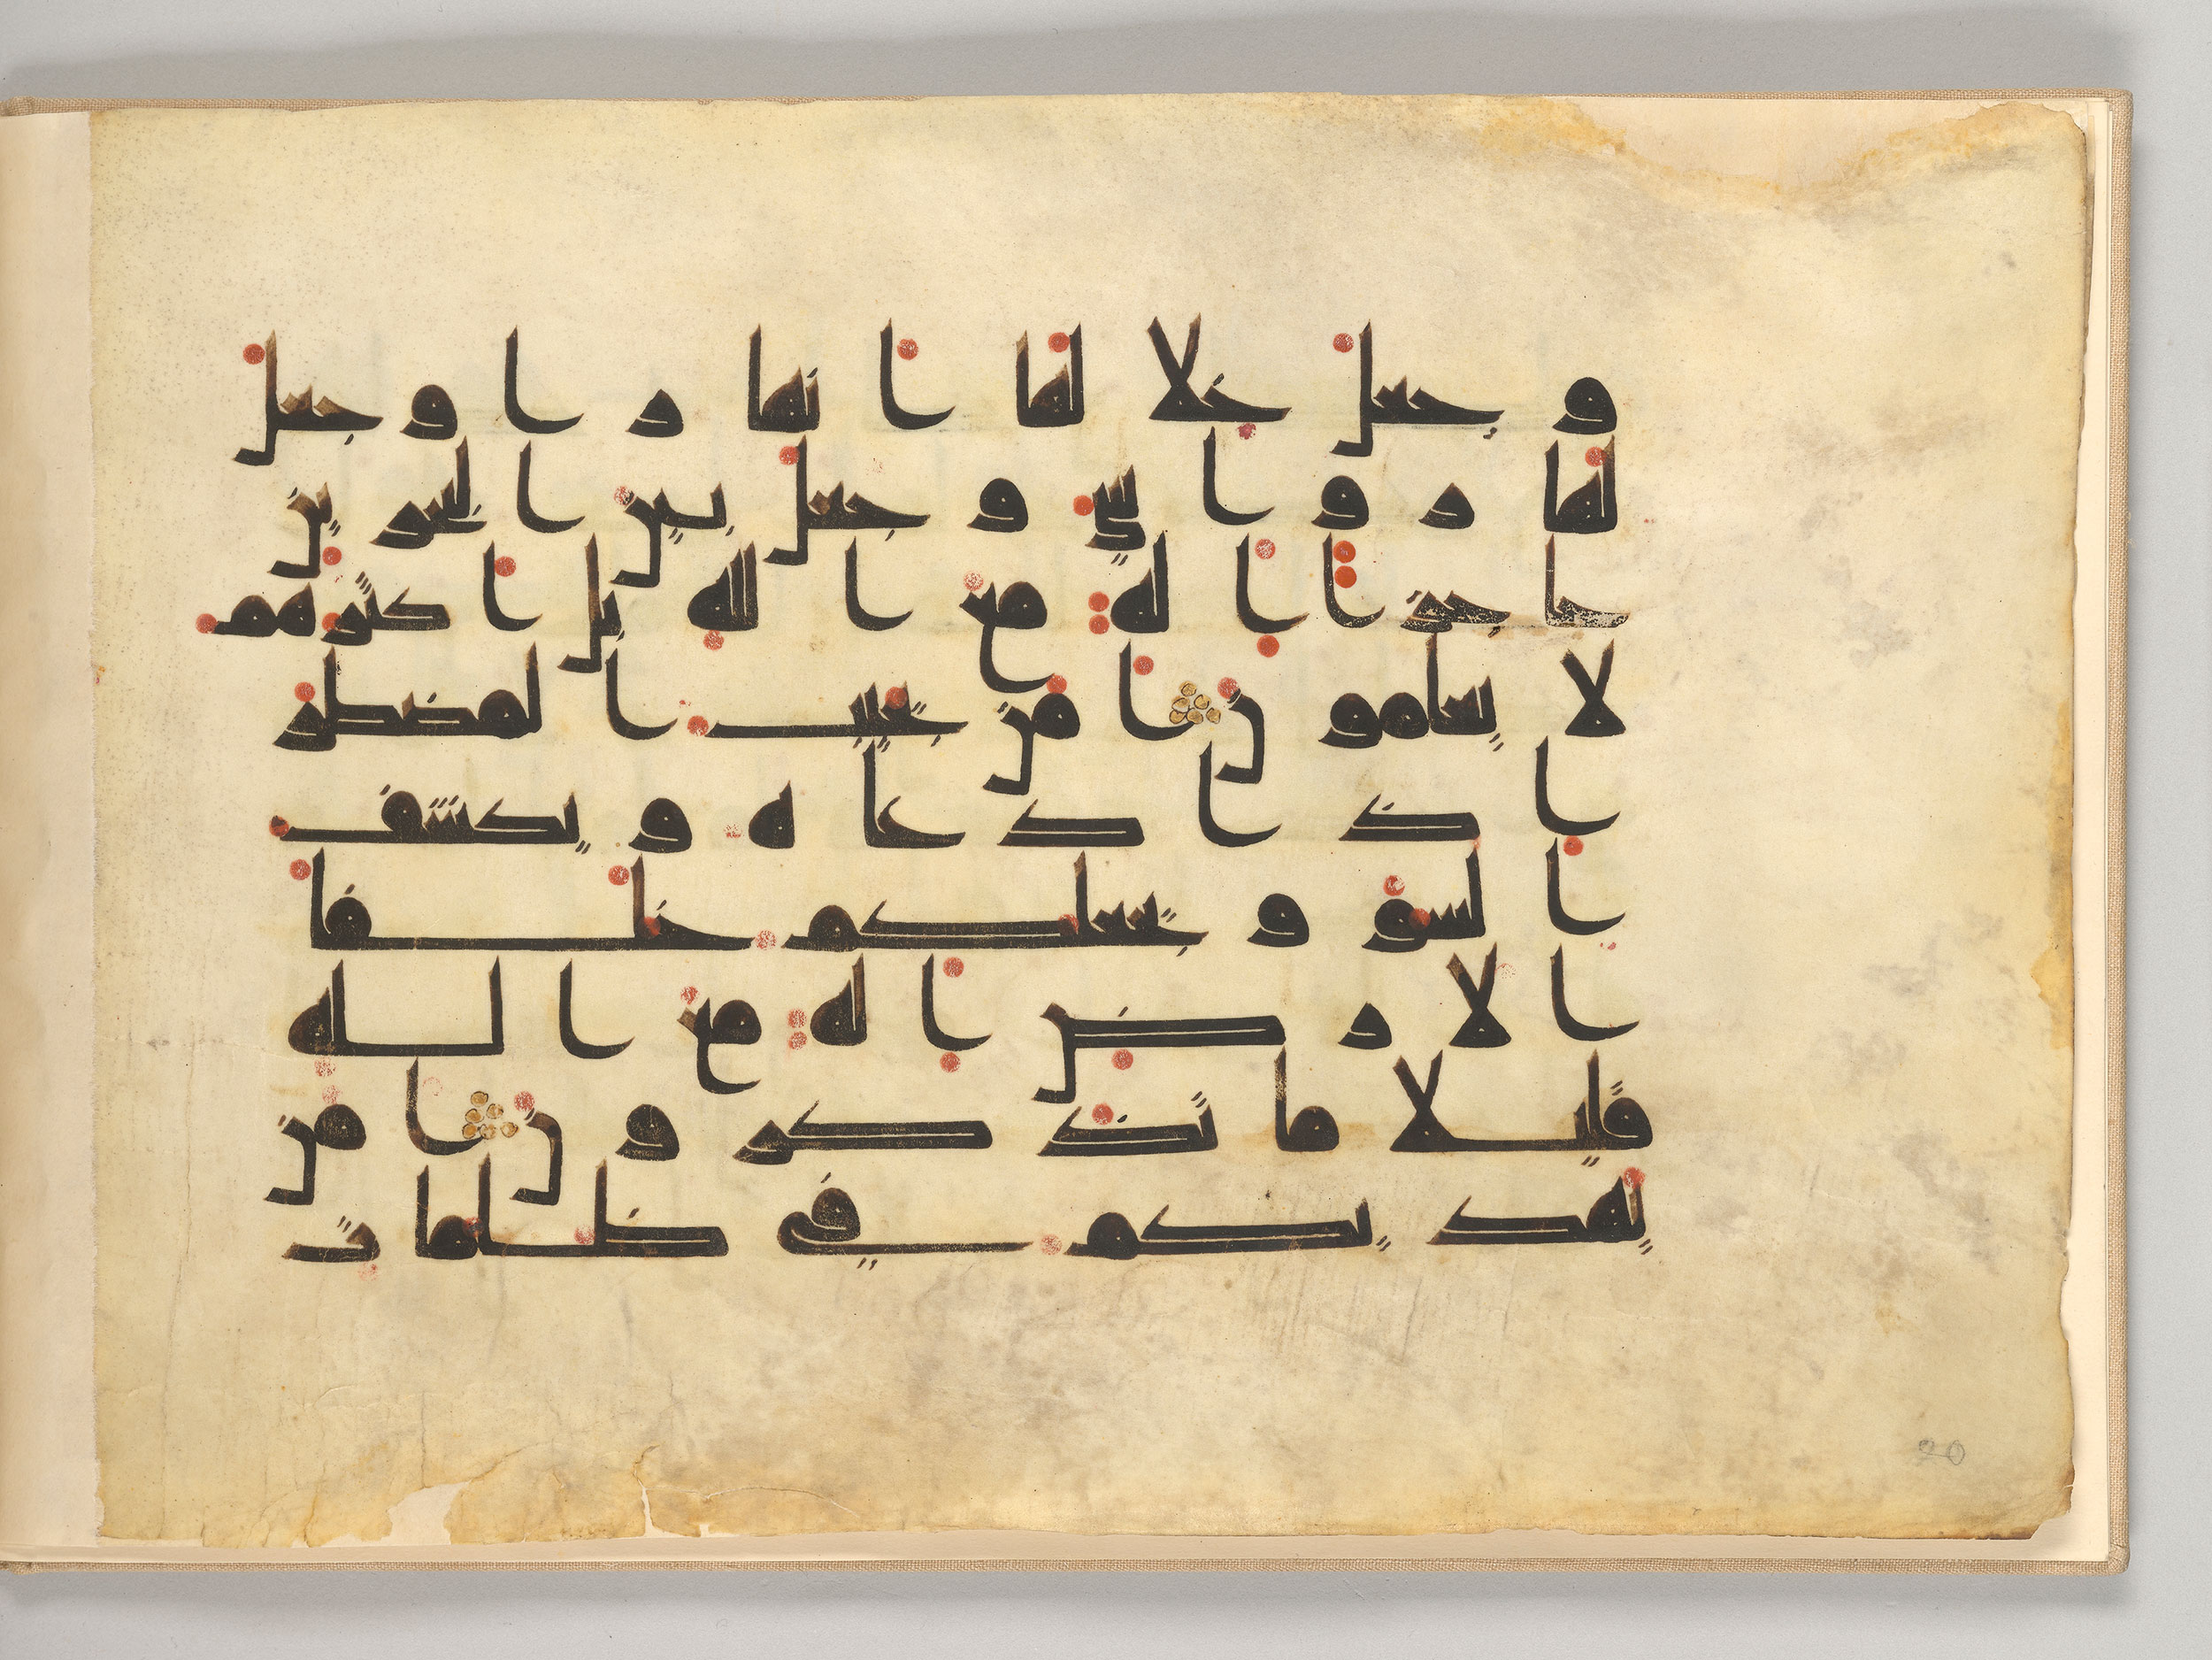 وجعل خلالها انهارا وجعل
لها رواسي وجعل بين البحرين
حاجزا اله مع الله بل اكثرهم
لا يعلمون امن يجيب المضطر
اذا دعاه ويكشف
السو ويجعلكم خلفا
الارض اله مع الله
قليلا ما تذكرون امن
يهديكم في ظلمات
20